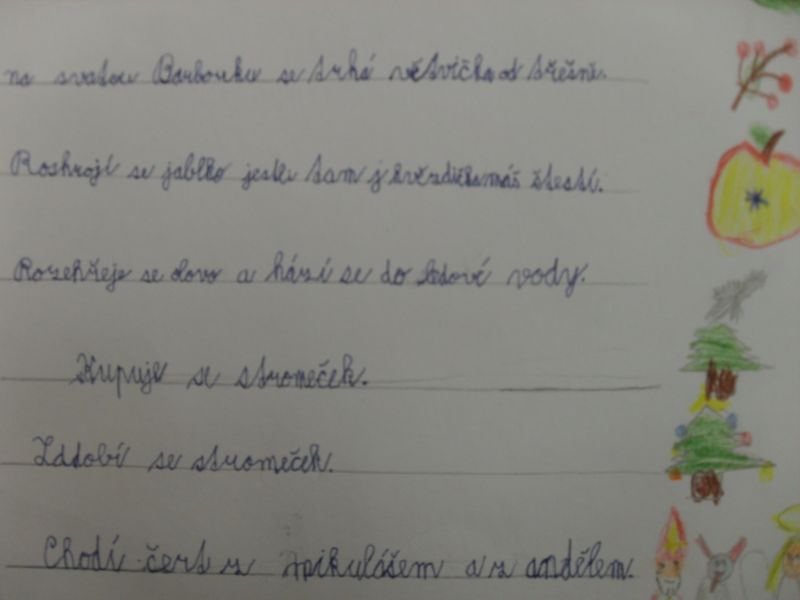 na svatou Barborku se trhá větvička od třešně.
Roskrojí se jablko jestli tam j hvězdička máš štestí.
Rozehřeje se olovo a hází se do ledové vody.
Kupuje se stromeček.
Zddobí se stromeček.
Chodí čert s mikulášem a s andělem.